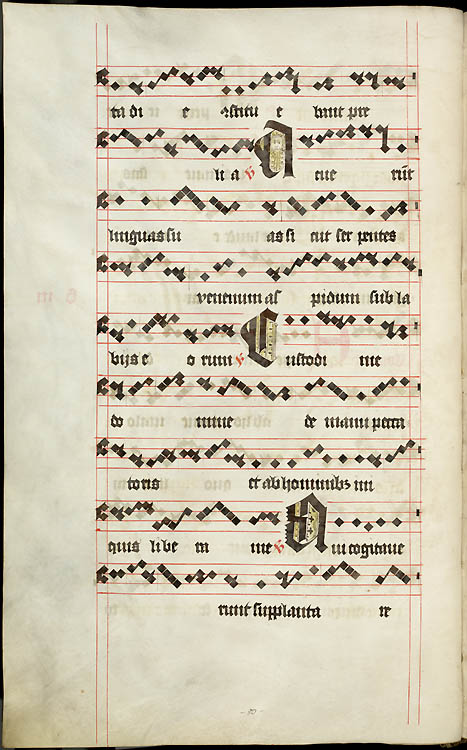 ta di e astitu e bant pre
li a ℣ Acue rūt
linguas su as si cut ser pentes
venenum as pidum sub la
bijs e o rum ℣ Custodi me
do mine de manu pecca
toris et ab hominibꝫ ini
quis libe ra me ℣ Qui cogitave
runt supplanta re